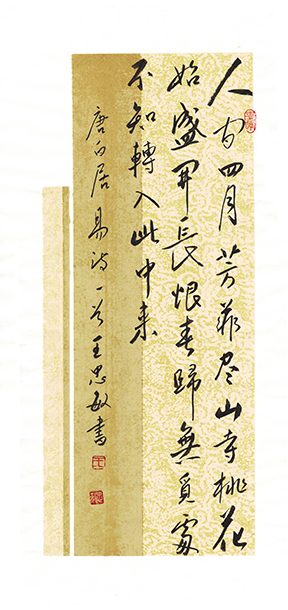 人间四月芳菲尽山寺桃花
始盛开長恨春歸無覓處
不知轉入此中来
唐白居易诗一首王思敏書